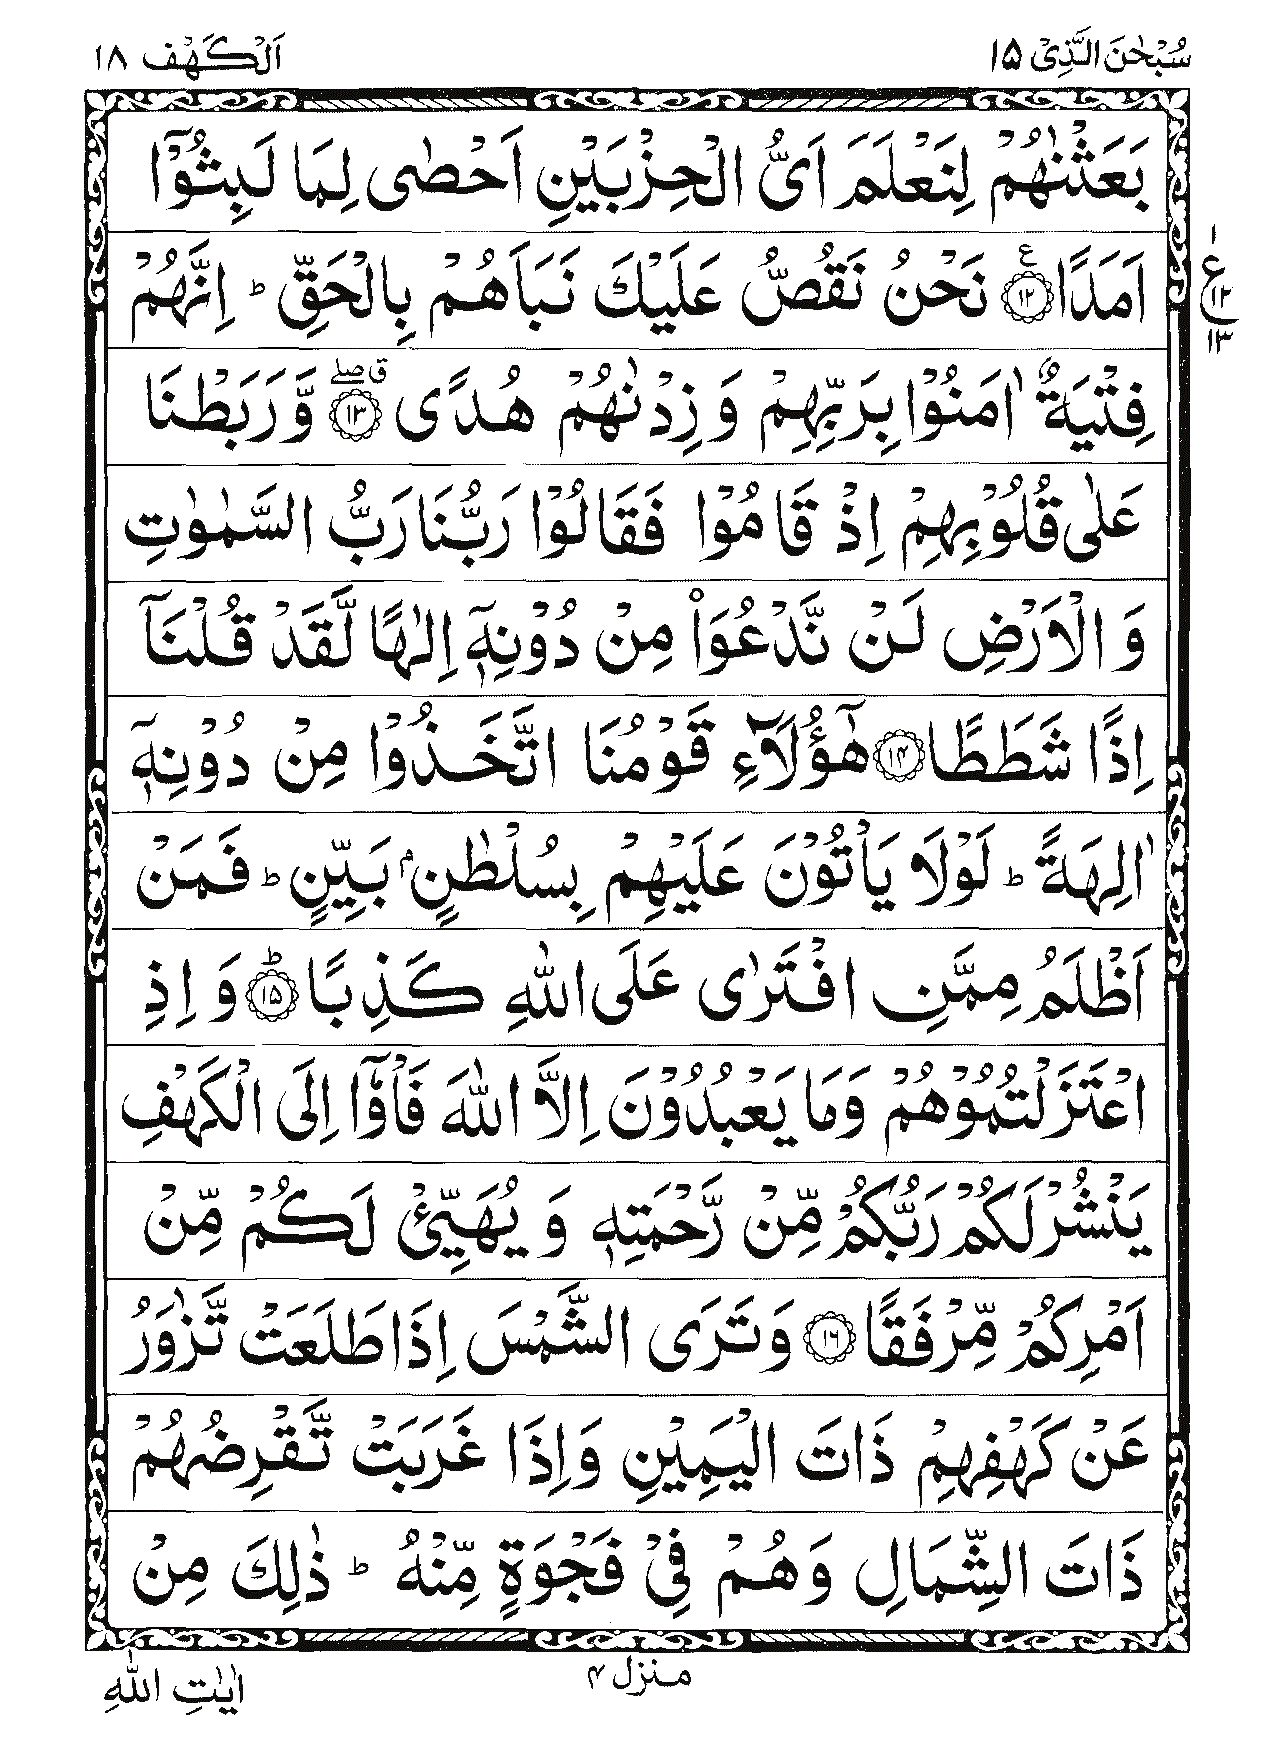 سُبْحٰنَ الَّذِیْۤ ۱۵
اَلْكَهْف ۱۸
بَعَثْنٰهُمْ لِنَعْلَمَ اَیُّ الْحِزْبَیْنِ اَحْصٰی لِمَا لَبِثُوْۤا
اَمَدًا ۟۱۲ ع نَحْنُ نَقُصُّ عَلَیْكَ نَبَاَهُمْ بِالْحَقِّ ؕ اِنَّهُمْ
۱
ع
۱۲
۱۳
فِتْیَةٌ اٰمَنُوْا بِرَبِّهِمْ وَ زِدْنٰهُمْ هُدًی ۱۳ ق صلے وَّ رَبَطْنَا
عَلٰی قُلُوْبِهِمْ اِذْ قَامُوْا فَقَالُوْا رَبُّنَا رَبُّ السَّمٰوٰتِ
وَ الْاَرْضِ لَنْ نَّدْعُوَا۠ مِنْ دُوْنِهٖۤ اِلٰهًا لَّقَدْ قُلْنَاۤ
اِذًا شَطَطًا ۱۴ هٰۤؤُلَآءِ قَوْمُنَا اتَّخَذُوْا مِنْ دُوْنِهٖۤ
اٰلِهَةً ؕ لَوْلَا یَاْتُوْنَ عَلَیْهِمْ بِسُلْطٰنٍۭ بَیِّنٍ ؕ فَمَنْ
اَظْلَمُ مِمَّنِ افْتَرٰی عَلَی اللّٰهِ كَذِبًا ۱۵ؕ وَ اِذِ
اعْتَزَلْتُمُوْهُمْ وَمَا یَعْبُدُوْنَ اِلَّا اللّٰهَ فَاْوٗۤا اِلَی الْكَهْفِ
یَنْشُرْ لَكُمْ رَبُّكُمْ مِّنْ رَّحْمَتِهٖ وَ یُهَیِّئْ لَكُمْ مِّنْ
اَمْرِكُمْ مِّرْفَقًا ۱۶ وَتَرَی الشَّمْسَ اِذَا طَلَعَتْ تَّزٰوَرُ
عَنْ كَهْفِهِمْ ذَاتَ الْیَمِیْنِ وَاِذَا غَرَبَتْ تَّقْرِضُهُمْ
ذَاتَ الشِّمَالِ وَهُمْ فِیْ فَجْوَةٍ مِّنْهُ ؕ ذٰلِكَ مِنْ
منزل ۴
اٰیٰتِ اللّٰهِ